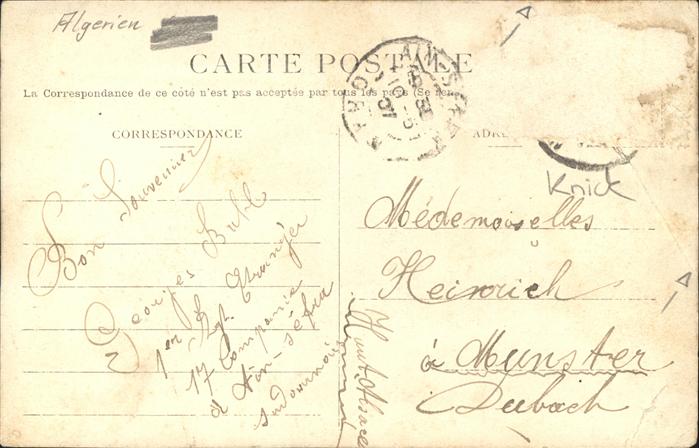 Algerien
CARTE POSTALE
La Correspondance de ce côté n'est pas acceptée par tous les pays (Se ren
CORRESPONDANCE
ADRE
Knick
Bon Souvenier
Georges Buhl
1er Rgt Etranger
17 Companie
à Aïn-séfra
Médemoiselles
Heinrich
à Munster
Haut Alsace